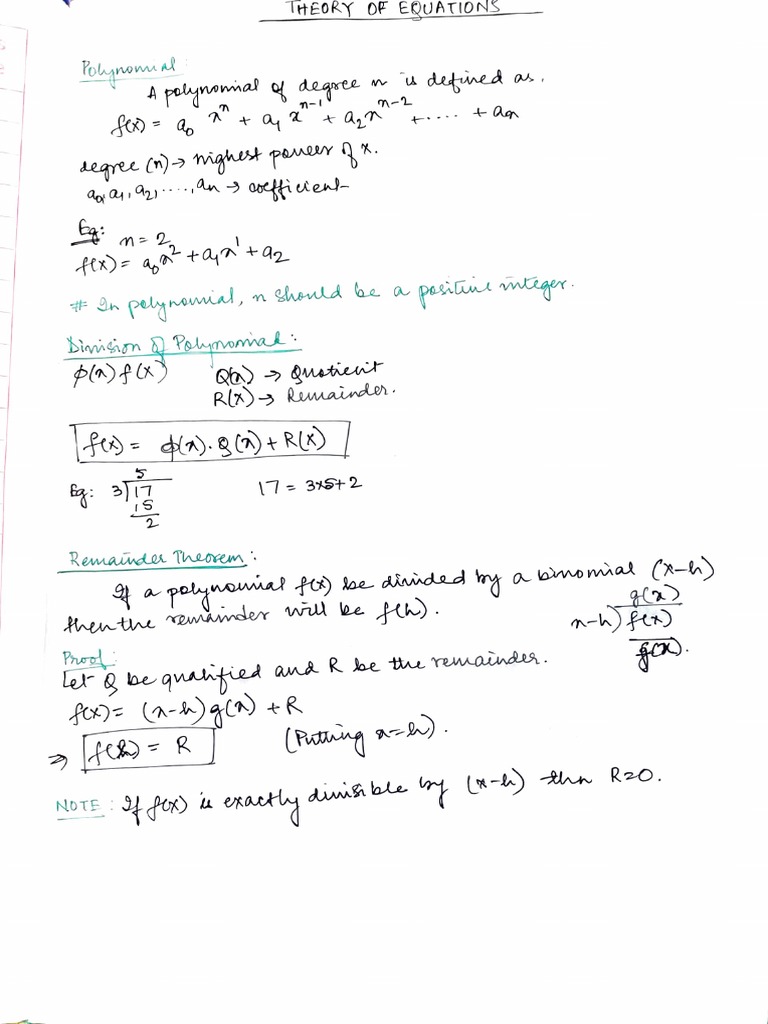 THEORY OF EQUATIONS
Polynomial:
A polynomial of degree n is defined as,
f(x) = a₀ xⁿ + a₁ xⁿ⁻¹ + a₂xⁿ⁻² + .... + aₙ
degree (n) → highest power of x.
a₀, a₁, a₂, ...., aₙ → coefficient
Eg: n = 2
f(x) = a₀x² + a₁x¹ + a₂
# In polynomial, n should be a positive integer.
Division of Polynomial:
ϕ(x) f(x) Q(x) → Quotient
R(x) → Remainder.
f(x) = ϕ(x). Q(x) + R(x)
5
Eg: 3)17 17 = 3x5+2
15
2
Remainder Theorem:
If a polynomial f(x) be divided by a binomial (x-h)
then the remainder will be f(h).
g(x)
x-h) f(x)
g(x).
Proof:
Let Q be qualified and R be the remainder.
f(x) = (x-h) g(x) + R
⇒ f(h) = R (Putting x=h).
NOTE: If f(x) is exactly divisible by (x-h) then R=0.